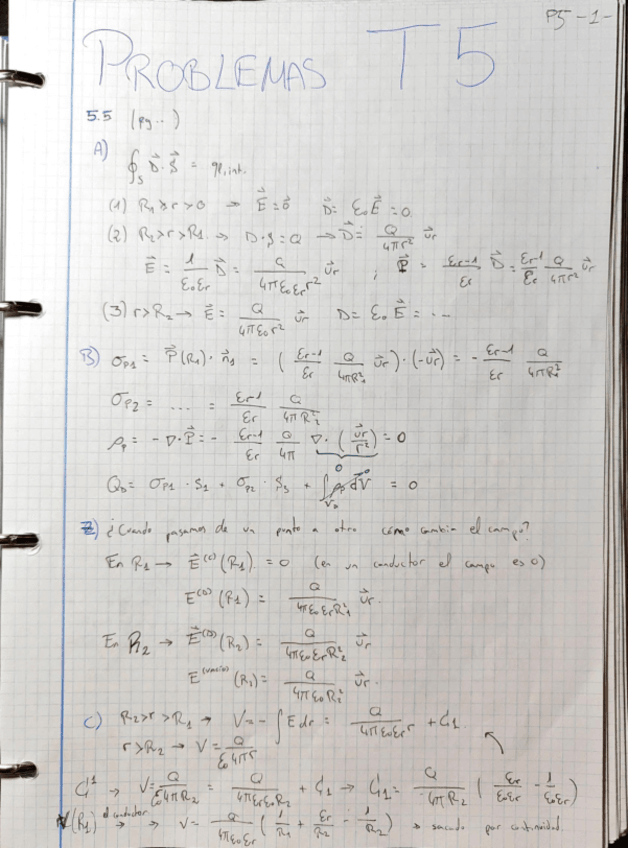 P5 -1-
PROBLEMAS T5
5.5 (pg..)
A)
∮_S D⃗·S⃗ = q,int.
(1) R₁>r>0 → E⃗=0⃗ D⃗= ε₀E⃗ =0
(2) R₂>r>R₁ → D·S=Q → D⃗= Q/4πr² u⃗r
E⃗ = 1/ε₀εr D⃗ = Q/4πε₀εr r² u⃗r ; P⃗ = εr-1/εr D⃗ = εr-1/εr Q/4πr² u⃗r
(3) r>R₂ → E⃗ = Q/4πε₀r² u⃗r D= ε₀E⃗ = ...
B) σp1 = P⃗(R₁)·n⃗₁ = (εr-1/εr Q/4πR₁² u⃗r)·(-u⃗r) = - εr-1/εr Q/4πR₁²
σp2 = .... = εr-1/εr Q/4πR₂²
ρp = -∇·P⃗ = - εr-1/εr Q/4π ∇·(u⃗r/r²) = 0
0
QD = σp1 · S₁ + σp2 · S₂ + ∫_VD ρp dV = 0
Z) ¿Cuando pasamos de un punto a otro cómo cambia el campo?
En R₁ → E⃗⁽ᶜ⁾(R₁) = 0 (en un conductor el campo es 0)
E⁽ᴰ⁾(R₁) = Q/4πε₀εrR₁² u⃗r.
En R₂ → E⃗⁽ᴰ⁾(R₂) = Q/4πε₀εrR₂² u⃗r
E⁽ᵛᵃᶜⁱᵒ⁾(R₂) = Q/4πε₀R₂² u⃗r.
C) R₂>r>R₁ → V=-∫E dr = Q/4πε₀εr r + C₁
r>R₂ → V= Q/ε₀4πr
C₁ → V= Q/ε₀4πR₂ = Q/4πεrε₀R₂ + C₁ → C₁ = Q/4πR₂ (εr/ε₀εr - 1/ε₀εr)
V(R₁) el conductor → V= Q/4πε₀εr (1/R₁ + εr/R₂ - 1/R₂) → sacado por continuidad.